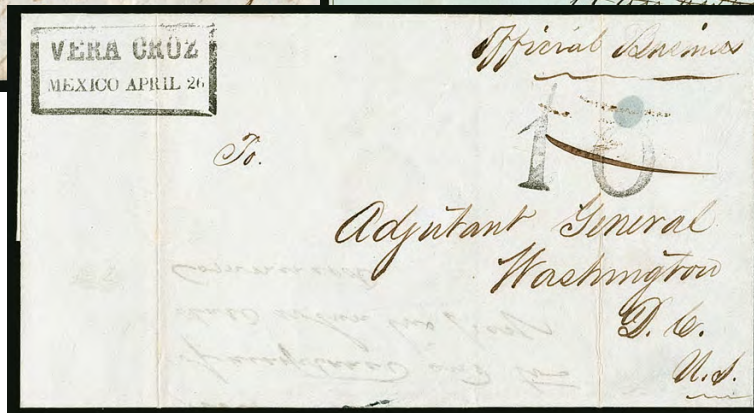 VERA CRUZ
MEXICO APRIL 26
Official Business
10
To.
Adjutant General
Washington
D. C.
U.S.